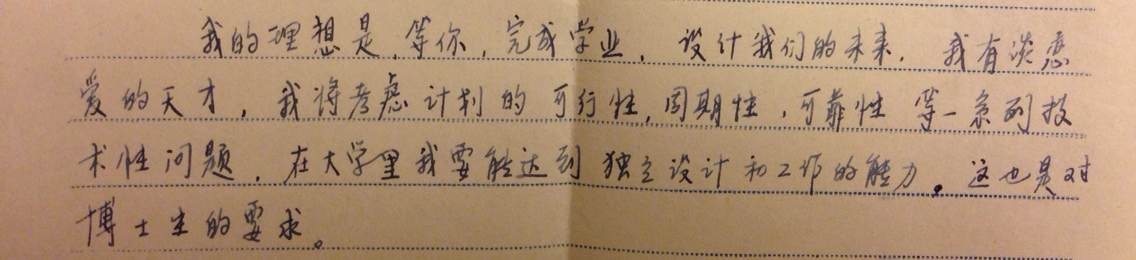 我的理想是,等你,完成学业,设计我们的未来,我有谈恋
爱的天才,我将考虑计划的可行性,周期性,可靠性等一系列技
术性问题,在大学里我要能达到独立设计和工作的能力。这也是对
博士生的要求。